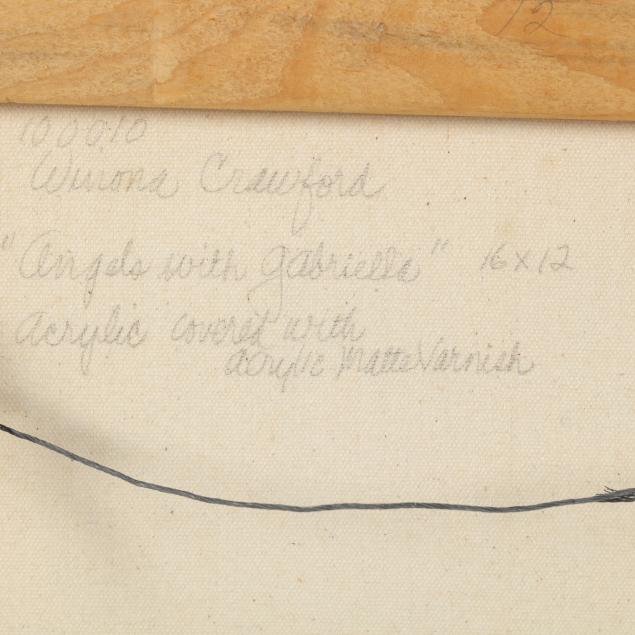 72
100010
Winona Crawford
"Angels with Gabriella" 16x12
Acrylic covered with
Acrylic Matte Varnish